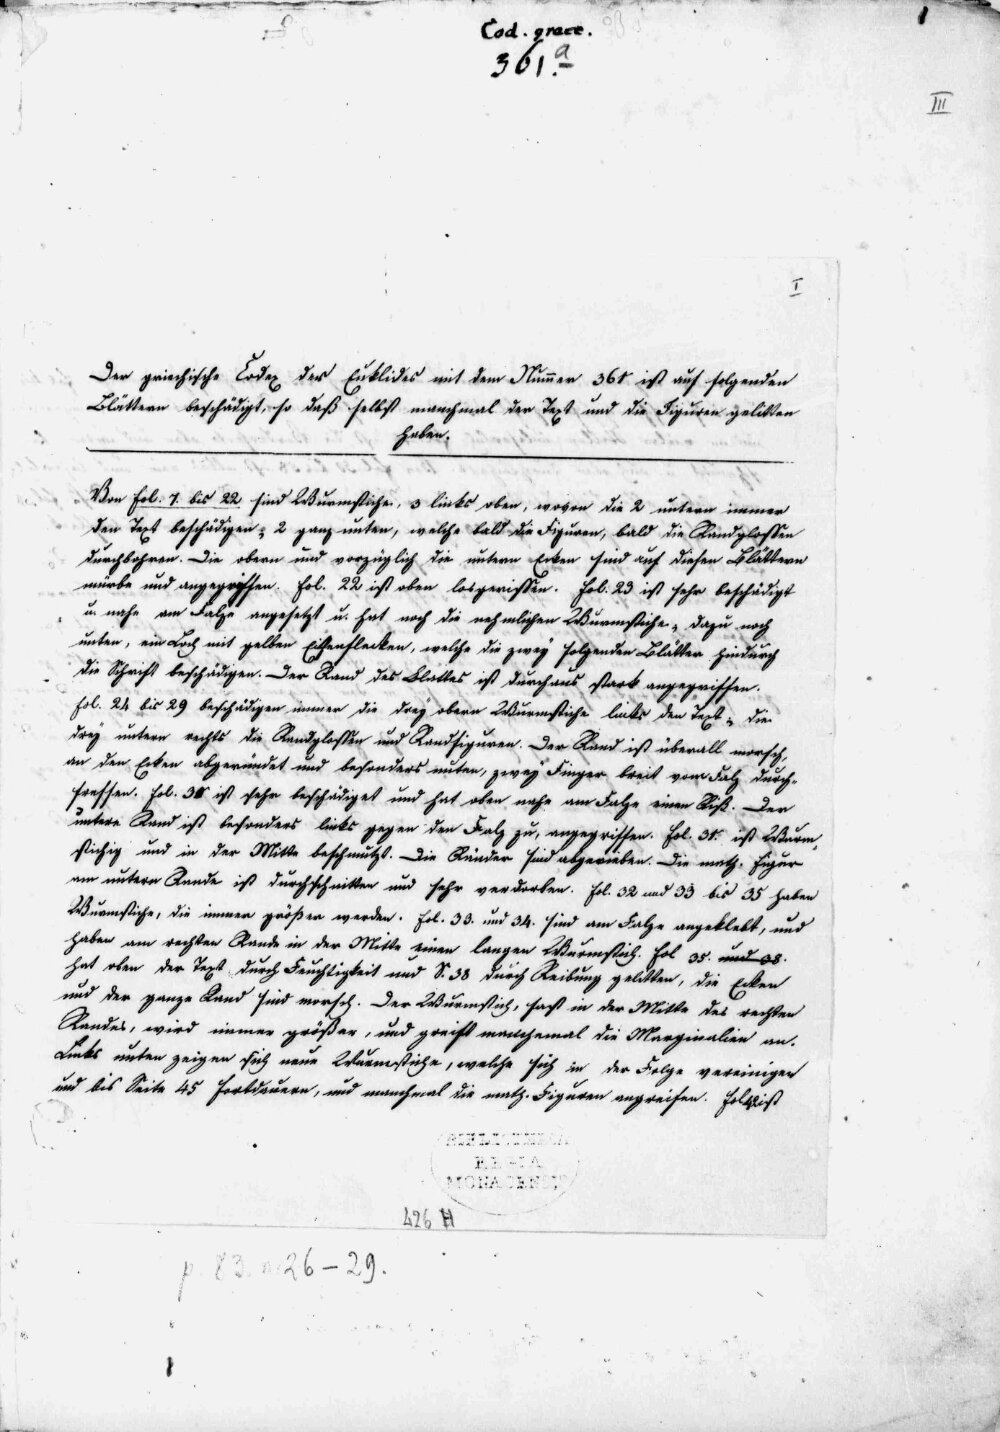 Cod. graec.
361.a
III
I
Der griechische Codex des Euklides mit dem Nummer 361 ist auf folgenden
Blättern beschädigt, so daß selbst manchmal der Text und die Figuren gelitten
haben.
Von fol. 7. bis 22 sind Wurmstiche, 3 links oben, wovon die 2 untern immer
den Text beschädigen; 2 ganz unten, welche bald die Figuren, bald die Randglossen
durchbohren. Die obern und vorzüglich die untern Ecken sind auf diesen Blättern
mürbe und angegriffen. fol. 22 ist oben losgerissen. fol. 23 ist sehr beschädigt
u. nahe am Falze angesetzt u. hat noch die nehmlichen Wurmstiche, dazu noch
unten, ein Loch mit gelben Eckenflecken, welche die zwey folgenden Blätter hindurch
die Schrift beschädigen. Der Rand des Blattes ist durchaus stark angegriffen.
fol. 24 bis 29 beschädigen immer die drey obern Wurmstiche links den Text, die
drey untern rechts die Randglossen und Randfiguren. Der Rand ist überall morsch,
an den Ecken abgeründet und besonders unten, zwey Finger breit vom Falz durch-
fressen. fol. 30 ist sehr beschädiget und hat oben nahe am Falze einen Riß. Der
untere Rand ist besonders links gegen den Falz zu, angegriffen. fol. 31. ist Wurm-
stichig und in der Mitte beschmutzt. Die Ränder sind abgerieben. Die math. Figur
am untern Rande ist durchschnitten und sehr verdorben. fol. 32 und 33 bis 35 haben
Wurmstiche, die immer größer werden. fol. 33. und 34. sind am Falze angeklebt, und
haben am rechten Rande in der Mitte einen langen Wurmstich. fol 35. und 38.
hat oben der Text durch Feuchtigkeit und S. 38 durch Reibung gelitten, die Ecken
und der ganze Rand sind morsch. Der Wurmstich, fast in der Mitte des rechten
Randes, wird immer größer, und greift manchemal die Marginalien an.
Links unten zeigen sich neue Wurmstiche, welche sich in der Folge vereinigen
und bis Seite 45 fortdauern, und manchmal die math. Figuren angreifen. fol. 42 ist
BIBLIOTHECA
REGIA
MONACENSIS
426 H
p. 83. n 26-29.